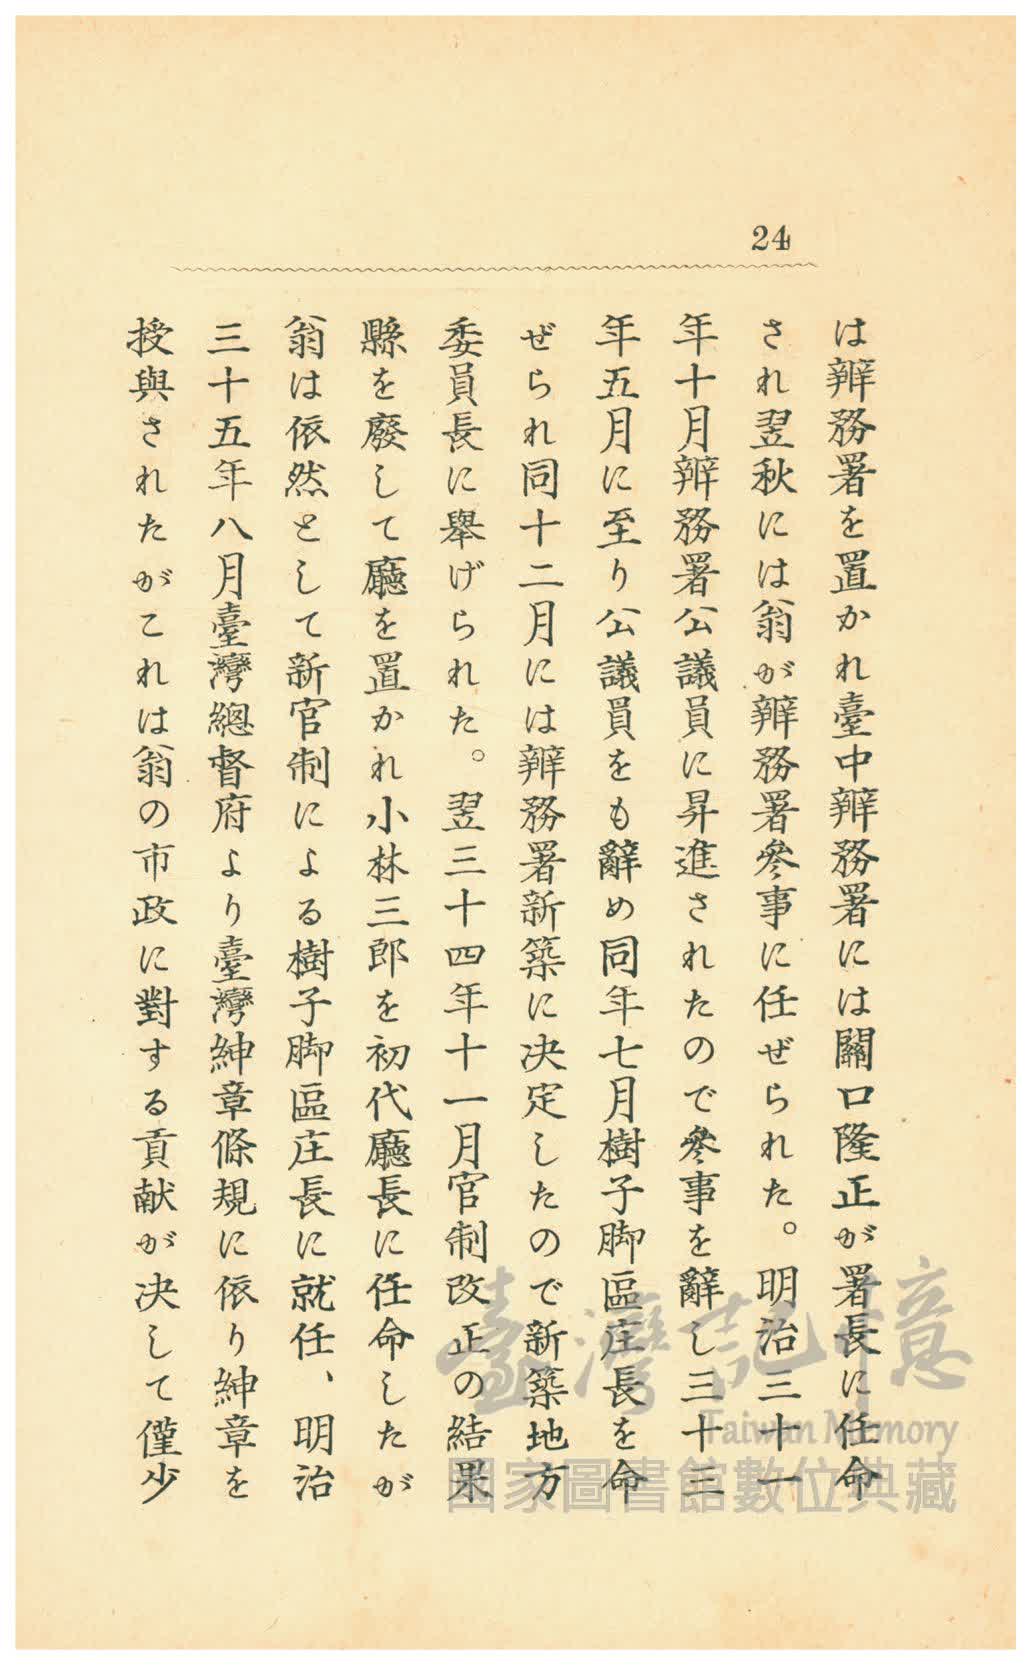 24
は辨務署を置かれ臺中辨務署には關口隆正が署長に任命
され翌秋には翁が辨務署參事に任ぜられた。明治三十一
年十月辨務署公議員に昇進されたので參事を辭し三十三
年五月に至り公議員をも辭め同年七月樹子脚區庄長を命
ぜられ同十二月には辨務署新築に决定したので新築地方
委員長に舉げられた。翌三十四年十一月官制改正の結果
縣を廢して廳を置かれ小林三郎を初代廳長に任命したが
翁は依然として新官制による樹子脚區庄長に就任、明治
三十五年八月臺灣總督府より臺灣紳章條規に依り紳章を
授與されたがこれは翁の市政に對する貢献が决して僅少
臺灣記憶
Taiwan Memory
國家圖書館數位典藏